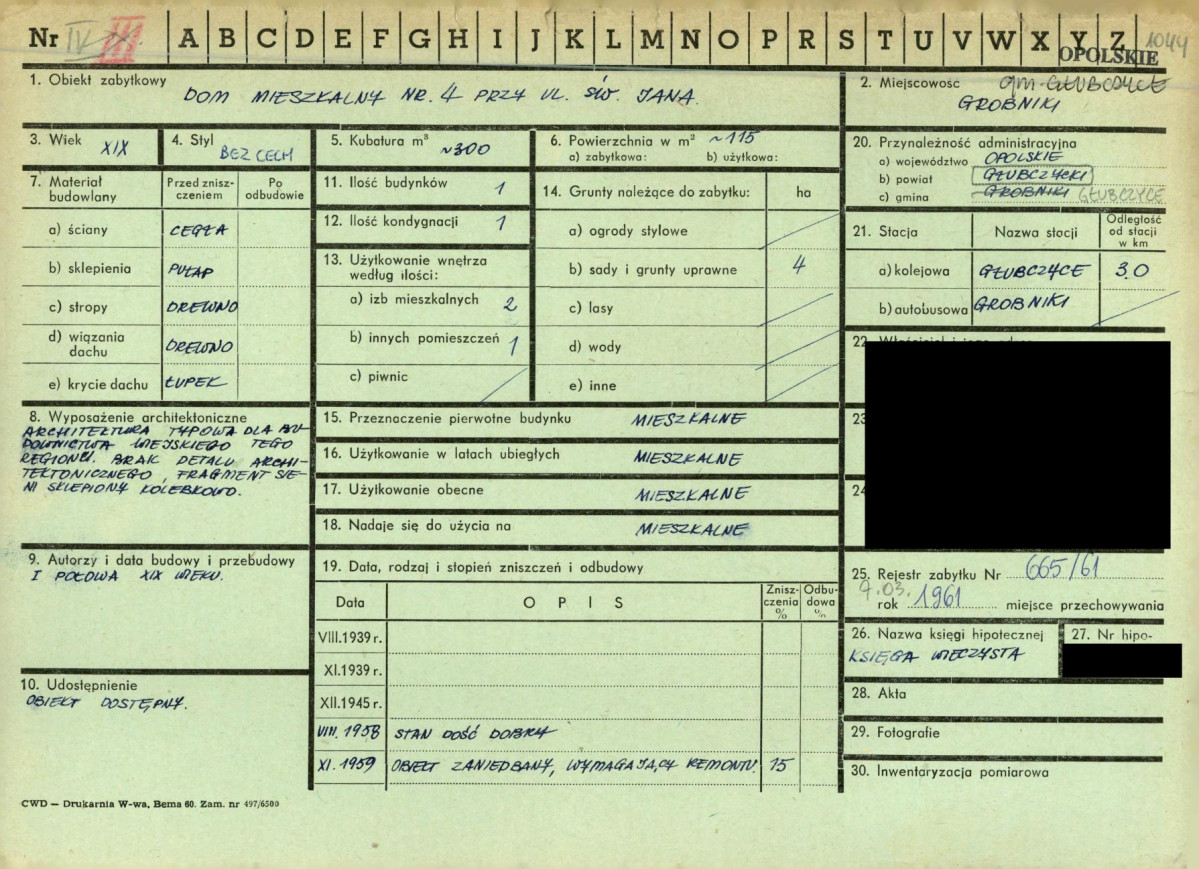 Nr IV III A B C D E F G H I J K L M N O P R S T U V W X Y Z 1044
OPOLSKIE
1. Obiekt zabytkowy
DOM MIESZKALNY NR. 4 PRZY UL. ŚW. JANA.
2. Miejscowość gm. GŁUBCZYCE
GROBNIKI
3. Wiek XIX
4. Styl BEZ CECH
5. Kubatura m³ ~300
6. Powierzchnia w m² ~115
a) zabytkowa: b) użytkowa:
7. Materiał budowlany
Przed zniszczeniem
Po odbudowie
a) ściany CEGŁA
b) sklepienia PUŁAP
c) stropy DREWNO
d) wiązania dachu DREWNO
e) krycie dachu ŁUPEK
8. Wyposażenie architektoniczne
ARCHITEKTURA TYPOWA DLA BU-
DOWNICTWA WIEJSKIEGO TEGO
REGIONU. BRAK DETALU ARCHI-
TEKTONICZNEGO, FRAGMENT SIE-
NI SKLEPIONY KOLEBKOWO.
9. Autorzy i data budowy i przebudowy
I POŁOWA XIX WIEKU.
10. Udostępnienie
OBIEKT DOSTĘPNY.
11. Ilość budynków 1
12. Ilość kondygnacji 1
13. Użytkowanie wnętrza
według ilości:
a) izb mieszkalnych 2
b) innych pomieszczeń 1
c) piwnic
14. Grunty należące do zabytku: ha
a) ogrody stylowe
b) sady i grunty uprawne 4
c) lasy
d) wody
e) inne
15. Przeznaczenie pierwotne budynku MIESZKALNE
16. Użytkowanie w latach ubiegłych MIESZKALNE
17. Użytkowanie obecne MIESZKALNE
18. Nadaje się do użycia na MIESZKALNE
19. Data, rodzaj i stopień zniszczeń i odbudowy
Data OPIS Znisz-
czenia
% Odbu-
dowa
%
VIII.1939 r.
XI.1939 r.
XII.1945 r.
VIII. 1958 STAN DOŚĆ DOBRY
XI. 1959 OBIEKT ZANIEDBANY, WYMAGAJĄCY REMONTU. 15
20. Przynależność administracyjna
a) województwo OPOLSKIE
b) powiat GŁUBCZYCKI
c) gmina GROBNIKI GŁUBCZYCE
21. Stacja Nazwa stacji Odległość
od stacji
w km
a) kolejowa GŁUBCZYCE 3.0
b) autobusowa GROBNIKI
22.
23
24
25. Rejestr zabytku Nr 665/61
7.03.
rok 1961 miejsce przechowywania
26. Nazwa księgi hipotecznej
KSIĘGA WIECZYSTA
27. Nr hipo-
28. Akta
29. Fotografie
30. Inwentaryzacja pomiarowa
CWD — Drukarnia W-wa, Bema 60. Zam. nr 497/6500